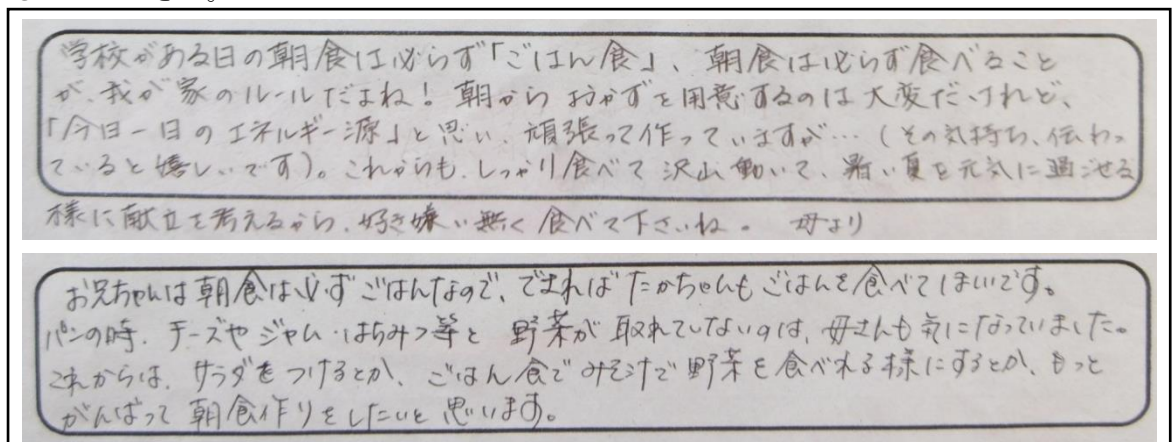 学校がある日の朝食は必らず「ごはん食」、朝食は必らず食べること
が、我が家のルールだよね！朝からおかずを用意するのは大変だけれど、
「今日一日のエネルギー源」と思い、頑張って作っていますが…（その気持ち、伝わっ
ていると嬉しいです）。これからも、しっかり食べて沢山動いて、暑い夏を元気に過ごせる
様に献立を考えるから、好き嫌い無く食べて下さいね。 母より
お兄ちゃんは朝食は必ずごはんなので、できればたかちゃんもごはんを食べてほしいです。
パンの時、チーズやジャム・はちみつ等と野菜が取れていないのは、母さんも気になっていました。
これからは、サラダをつけるとか、ごはん食でみそ汁で野菜を食べれる様にするとか、もっと
がんばって朝食作りをしたいと思います。